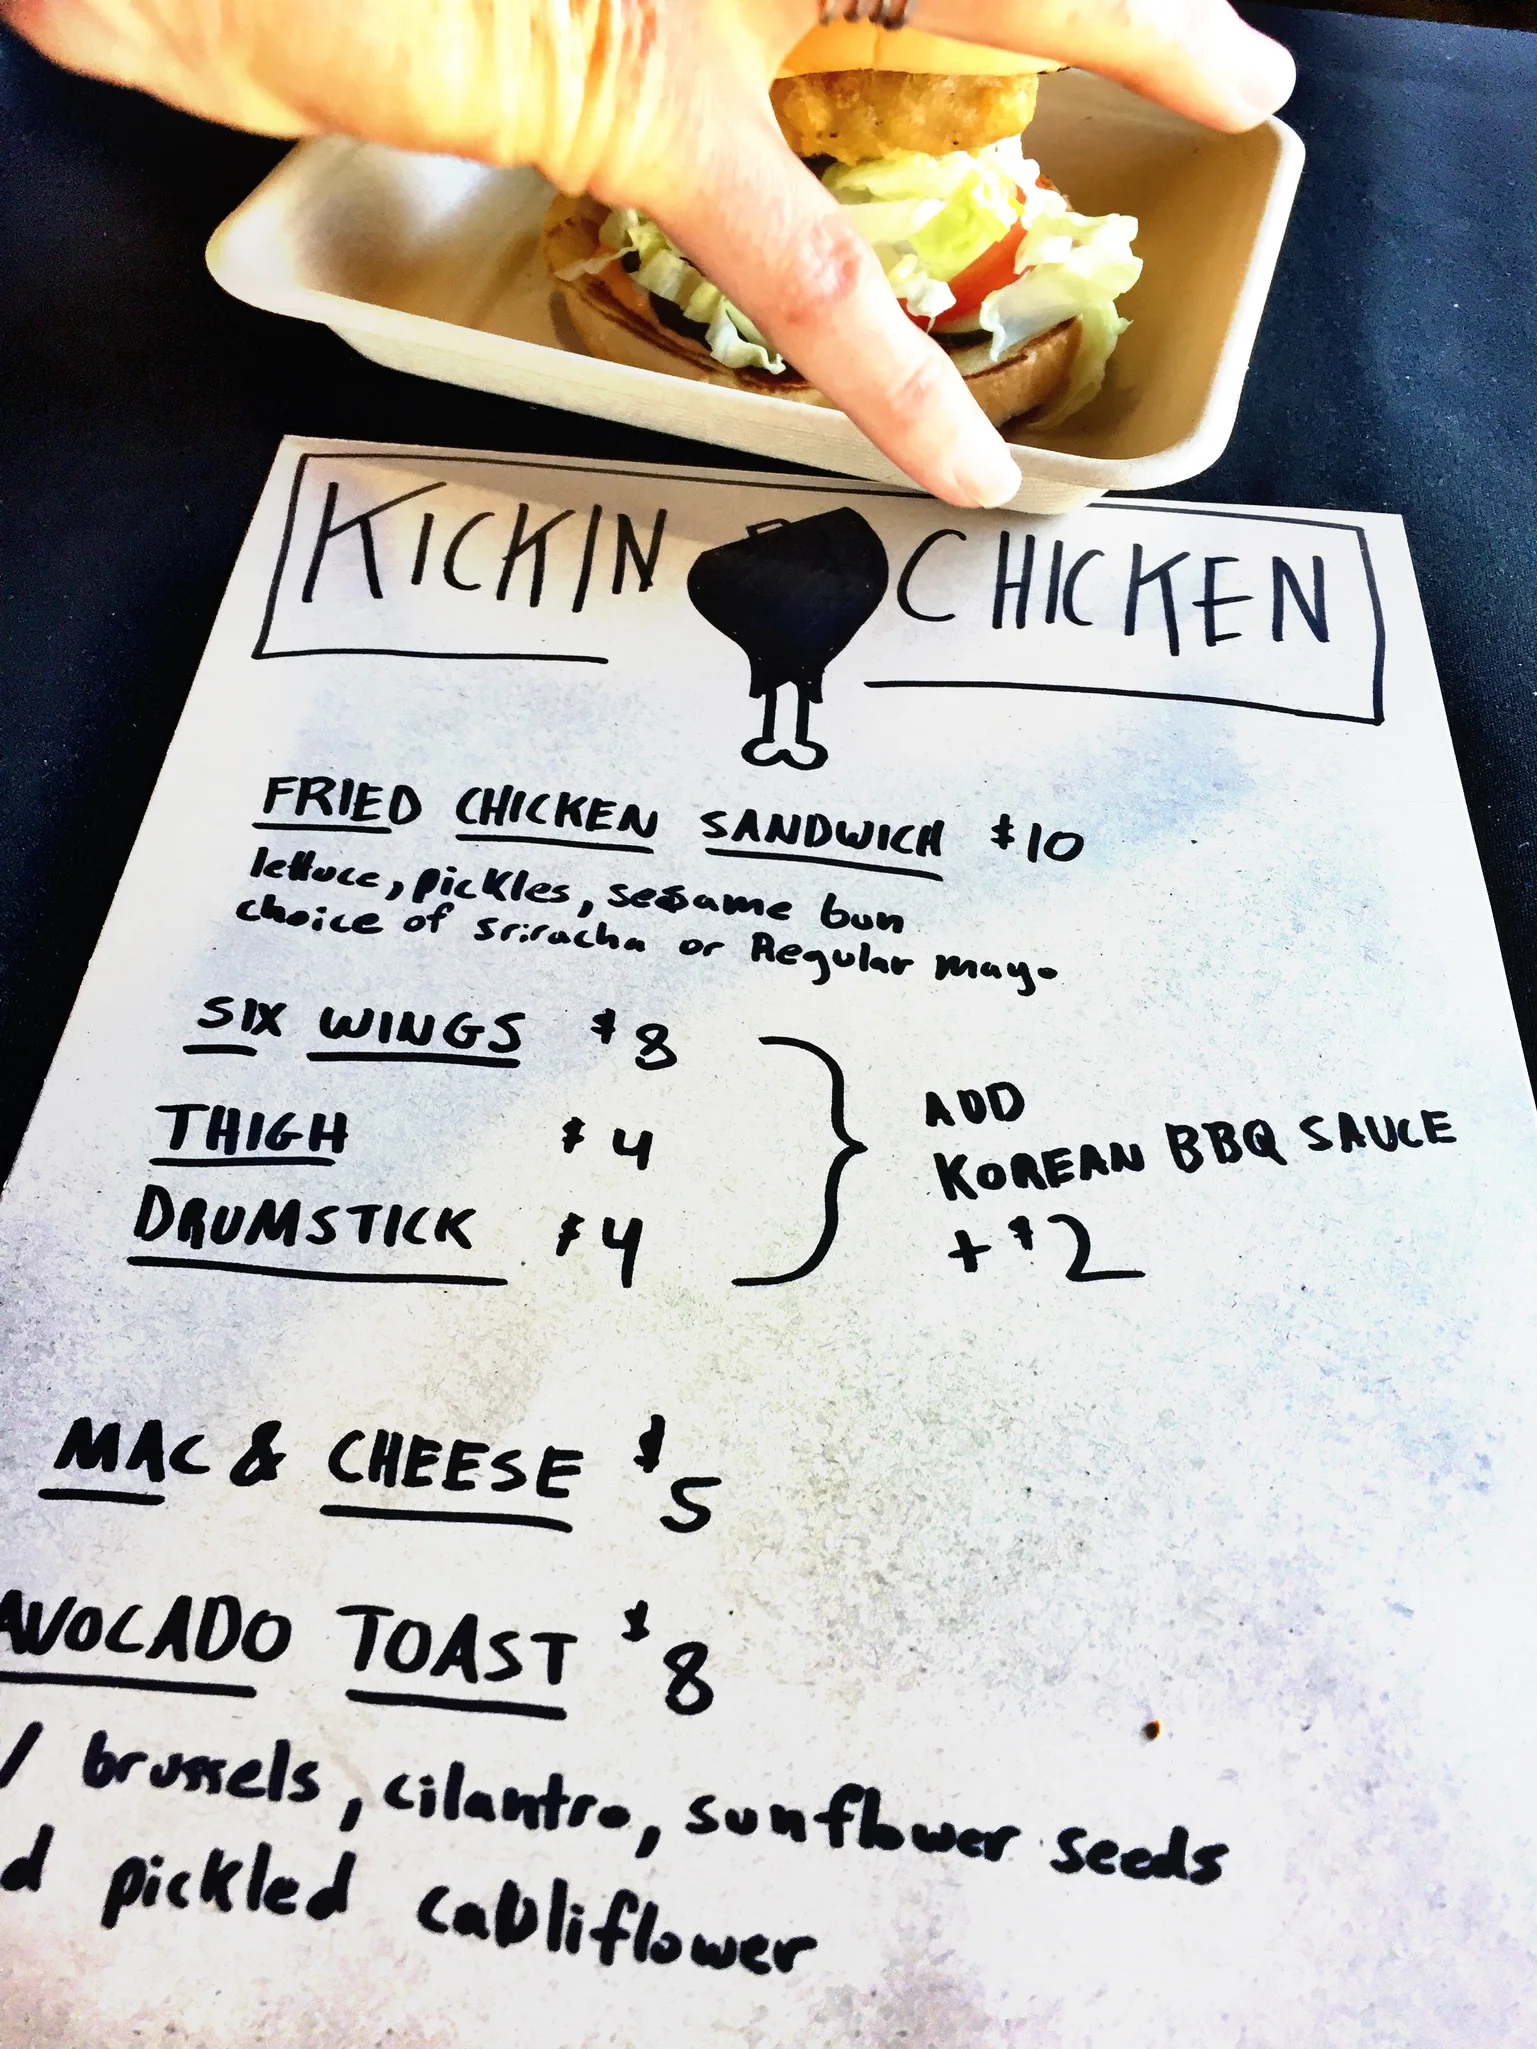 KICKIN CHICKEN
FRIED CHICKEN SANDWICH $10
lettuce, pickles, sesame bun
choice of sriracha or Regular mayo
SIX WINGS $8
THIGH $4
DRUMSTICK $4
ADD
KOREAN BBQ SAUCE
+ $2
MAC & CHEESE $5
AVOCADO TOAST $8
/ brussels, cilantro, sunflower seeds
d pickled cauliflower